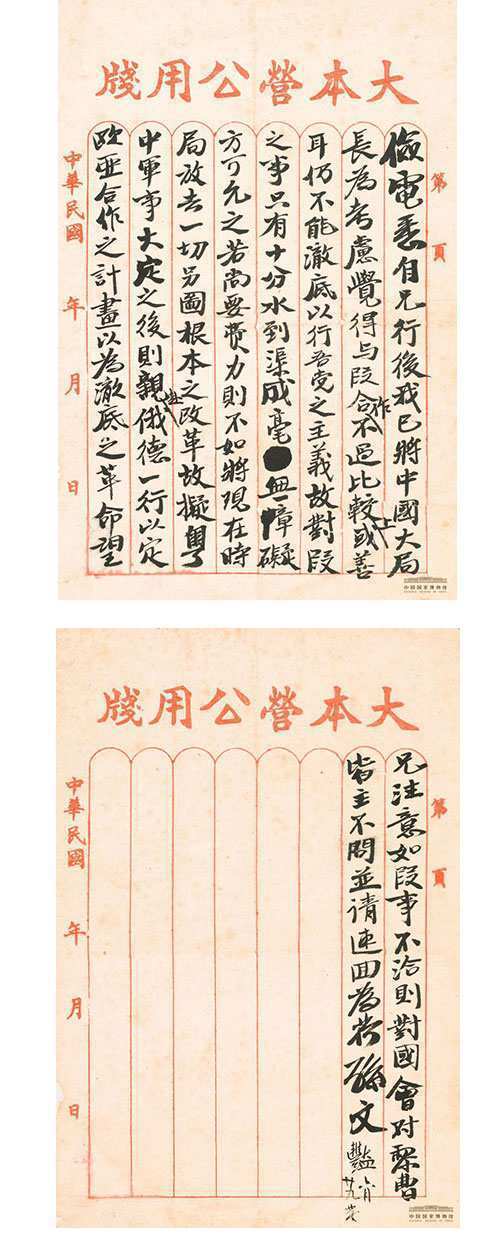 大本營公用牋
第 頁
儉電悉自兄行後我已將中國大局
長為考慮覺得与段合作不過比較上或善
耳仍不能澈底以行吾党之主義故對段
之事只有十分水到渠成毫無障礙
方可允之若尚要费力則不如將現在時
局放去一切另圖根本之改革故擬粤
中軍事大定之後則親赴俄德一行以定
欧亞合作之計畫以為澈底之革命望
中華民國 年 月 日
中国国家博物馆
大本營公用牋
第 頁
兄注意如段事不洽則對國會对黎曹
皆主不問並请速回為荷孫文 豔
中華民國 年 月 日
中国国家博物馆